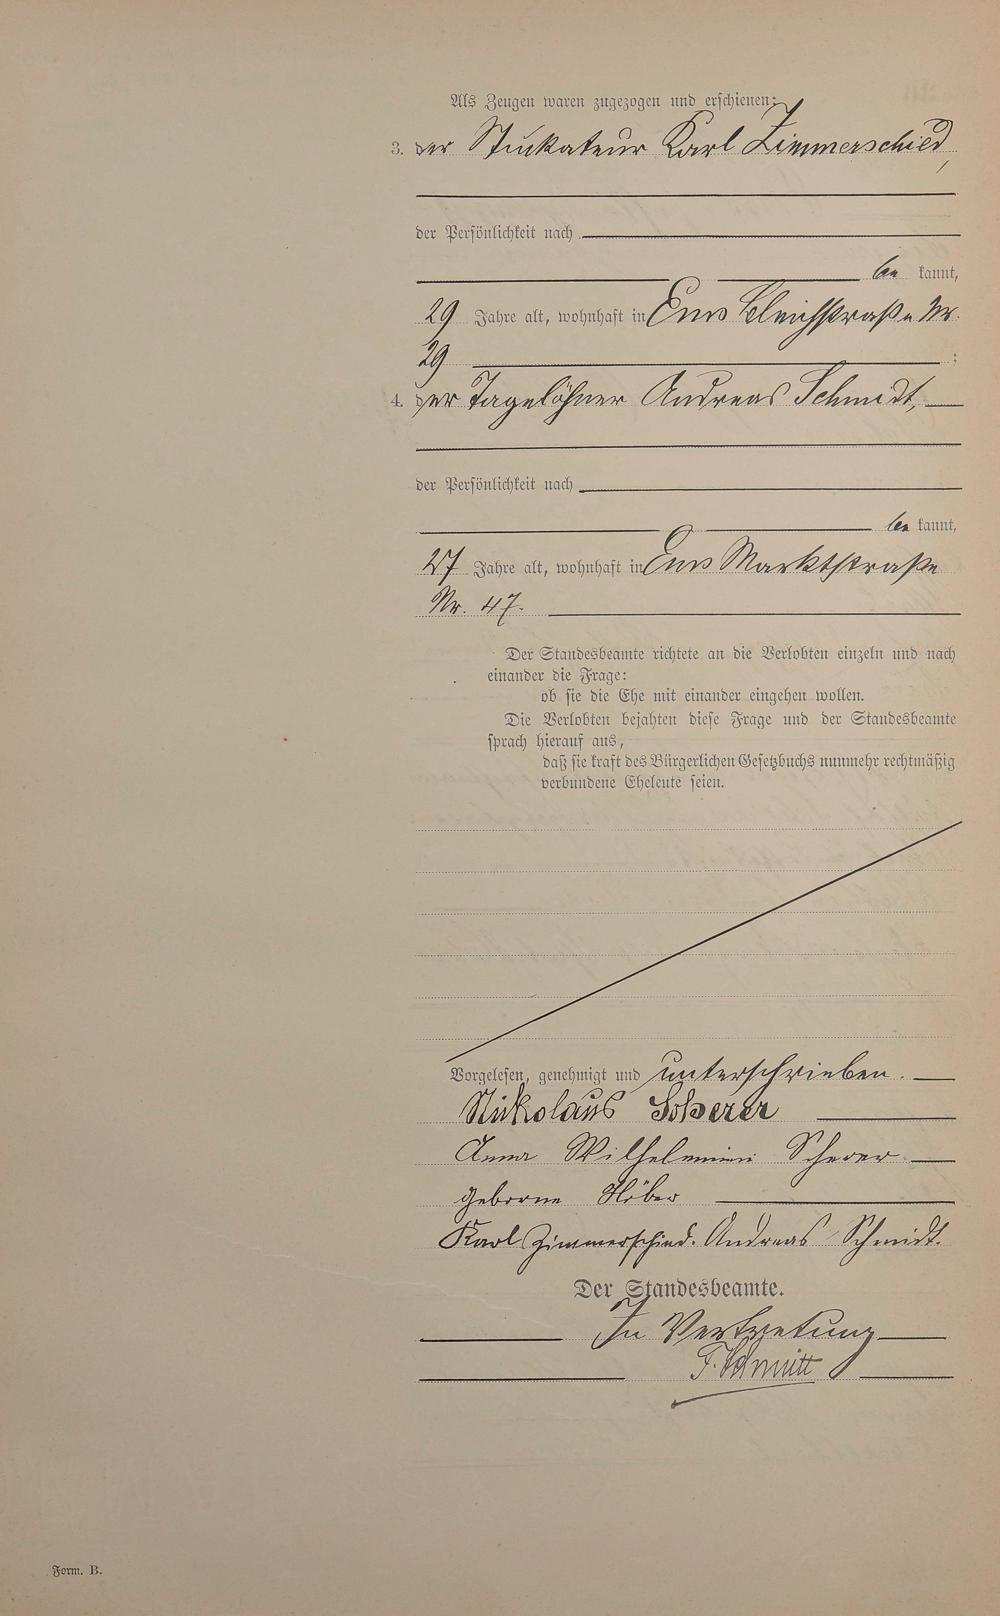 Als Zeugen waren zugezogen und erschienen:
3. der Stuckateur Karl Zimmerschied,
der Persönlichkeit nach
be kannt,
29 Jahre alt, wohnhaft in Ems Bleichstraße Nr.
29 ;
4. der Tagelöhner Andreas Schmidt,
der Persönlichkeit nach
be kannt,
27 Jahre alt, wohnhaft in Ems Marktstraße
Nr. 47.
Der Standesbeamte richtete an die Verlobten einzeln und nach
einander die Frage:
ob sie die Ehe mit einander eingehen wollen.
Die Verlobten bejahten diese Frage und der Standesbeamte
sprach hierauf aus,
daß sie kraft des Bürgerlichen Gesetzbuchs nunmehr rechtmäßig
verbundene Eheleute seien.
Vorgelesen, genehmigt und unterschrieben.
Nickolaus Scherer
Anna Wilhelmine Scherer
geborne Höber
Karl Zimmerschied. Andreas Schmidt.
Der Standesbeamte.
In Vertretung
F. Schmitt
Form. B.